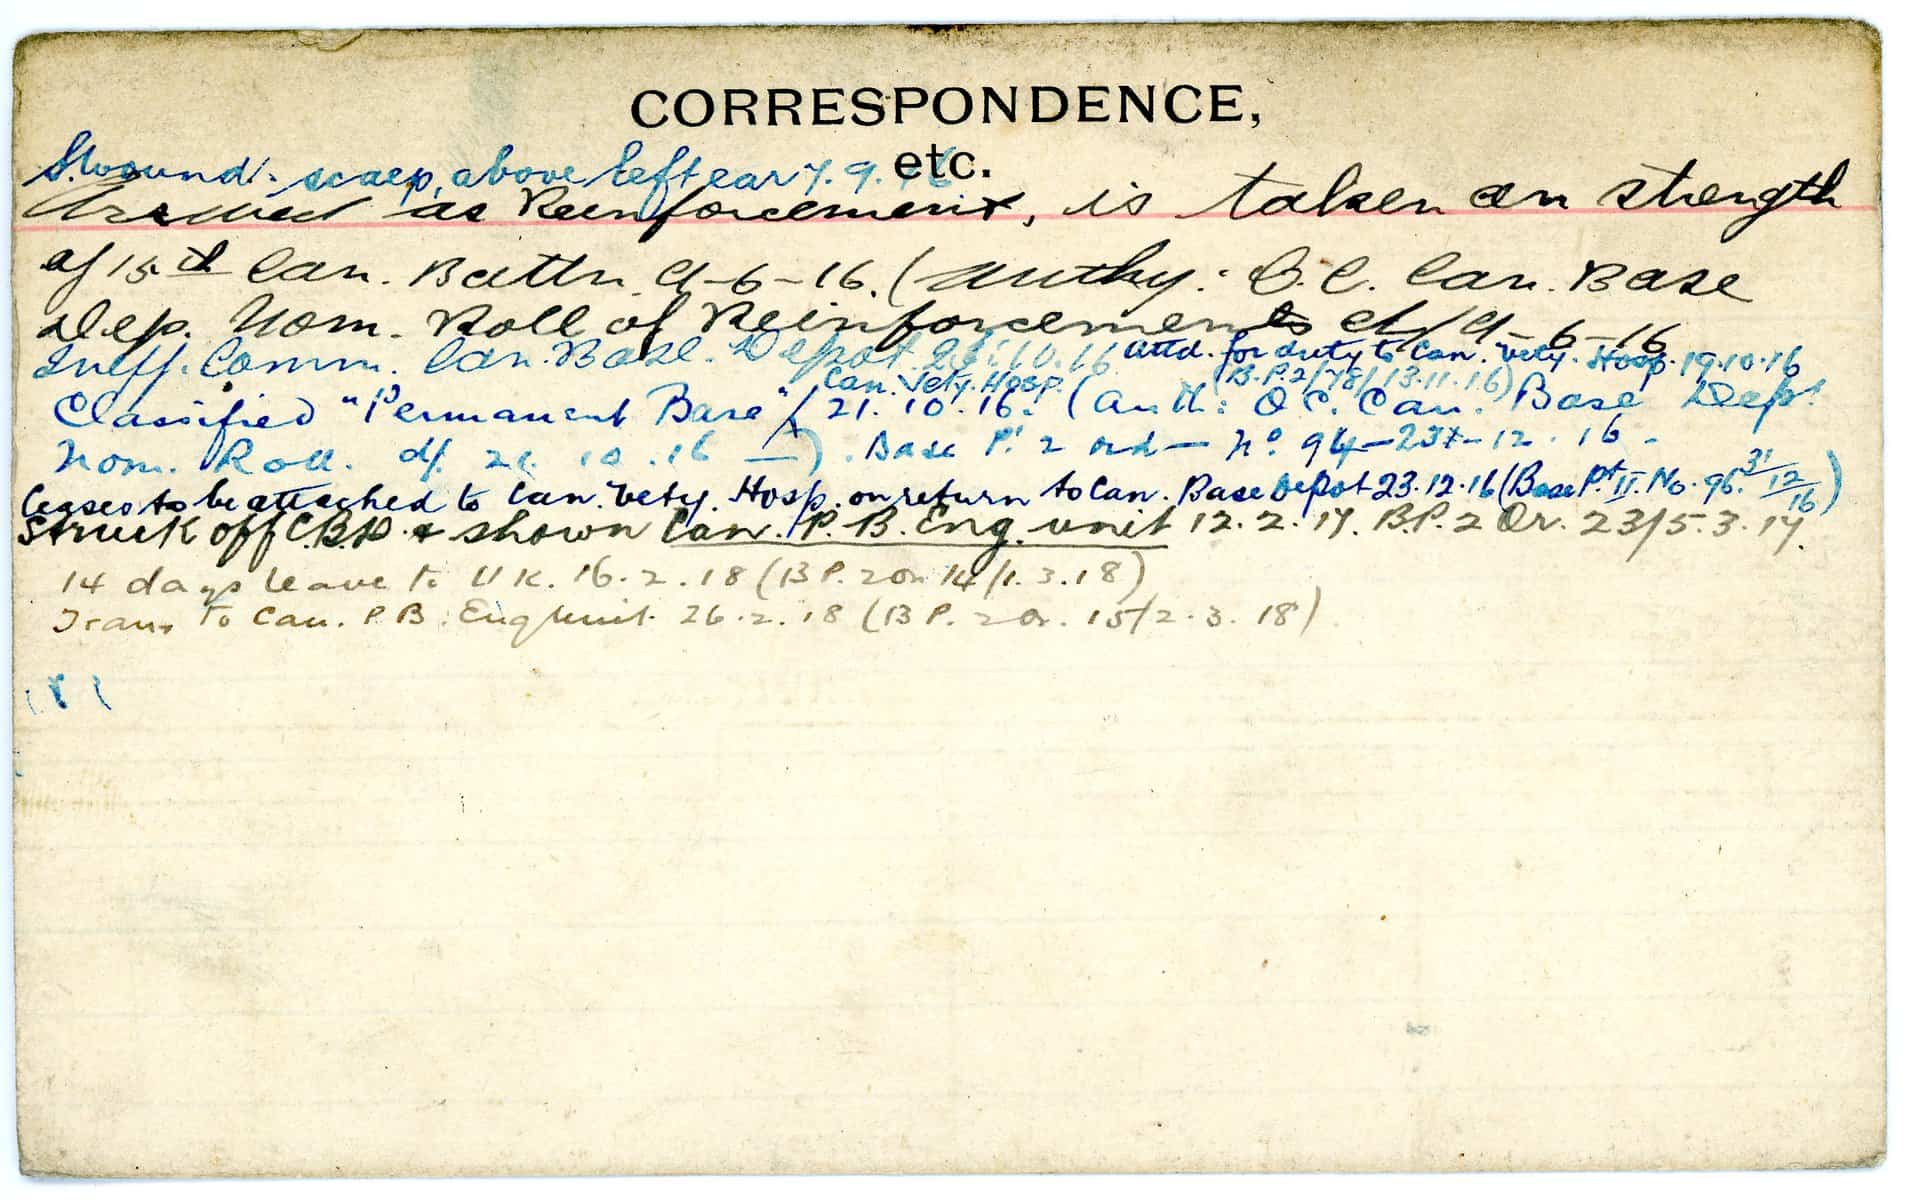 CORRESPONDENCE,
etc.
S. Wound: scalp, above left ear 7. 9. 16
Arrived as Reinforcement, is taken on strength
of 15th Can. Battn. 9-6-16. (Authy: O.C. Can. Base
Dep. Nom. Roll of Reinforcements d/ 9-6-16
Ineff. Comm. Can. Base. Depot. 10.16 attd. for duty to Can. Vety. Hosp. 19.10.16
Can. Vety. Hosp. (B.P.2/78/13.11.16)
Classified "Permanent Base" 21. 10. 16. (Auth: O C. Can. Base Dept
Nom. Roll. d/. 21. 10. 16 —). Base Pt 2 ord — No 94 — 23 - 12. 16 -
Ceases to be attached to Can. Vety. Hosp. on return to Can. Base Depot 23.12.16 (Base Pt II. No. 96. 31/12/16)
Struck off C.B.D. & shown Can. P. B. Eng. unit 12. 2. 17. B.P. 2 Or. 23/5.3.17.
14 days leave to U K. 16. 2. 18 (B P. 2 Or 14/1. 3. 18)
Trans to Can. P B. Eng Unit. 26. 2. 18 (B P. 2 Or. 15/2. 3. 18)